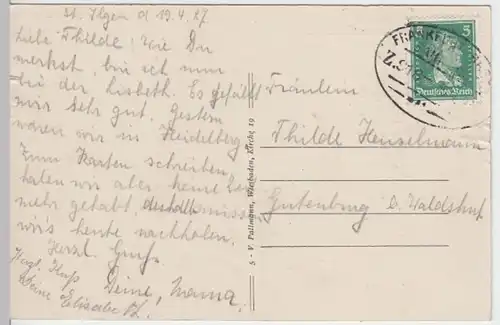 St. Ilgen d 19.4.27
Liebe Thilde! Wie Du
merkst, bin ich nun
bei der Lisbeth. Es gefällt
mir sehr gut. Gestern
waren wir in Heidelberg
Zum Karten schreiben
haben wir aber keine Zeit
mehr gehabt, deshalb müssen
wir's heute nachholen.
Herzl. Gruß
Deine
Herzl. Gruß
Deine Elisabeth
5 - V. Pullmann, Wiesbaden, Kirchg. 19
FRANKF
Z.
5
Deutsches Reich
Fräulein
Thilde Henselmann
Gutenburg b. Waldshut